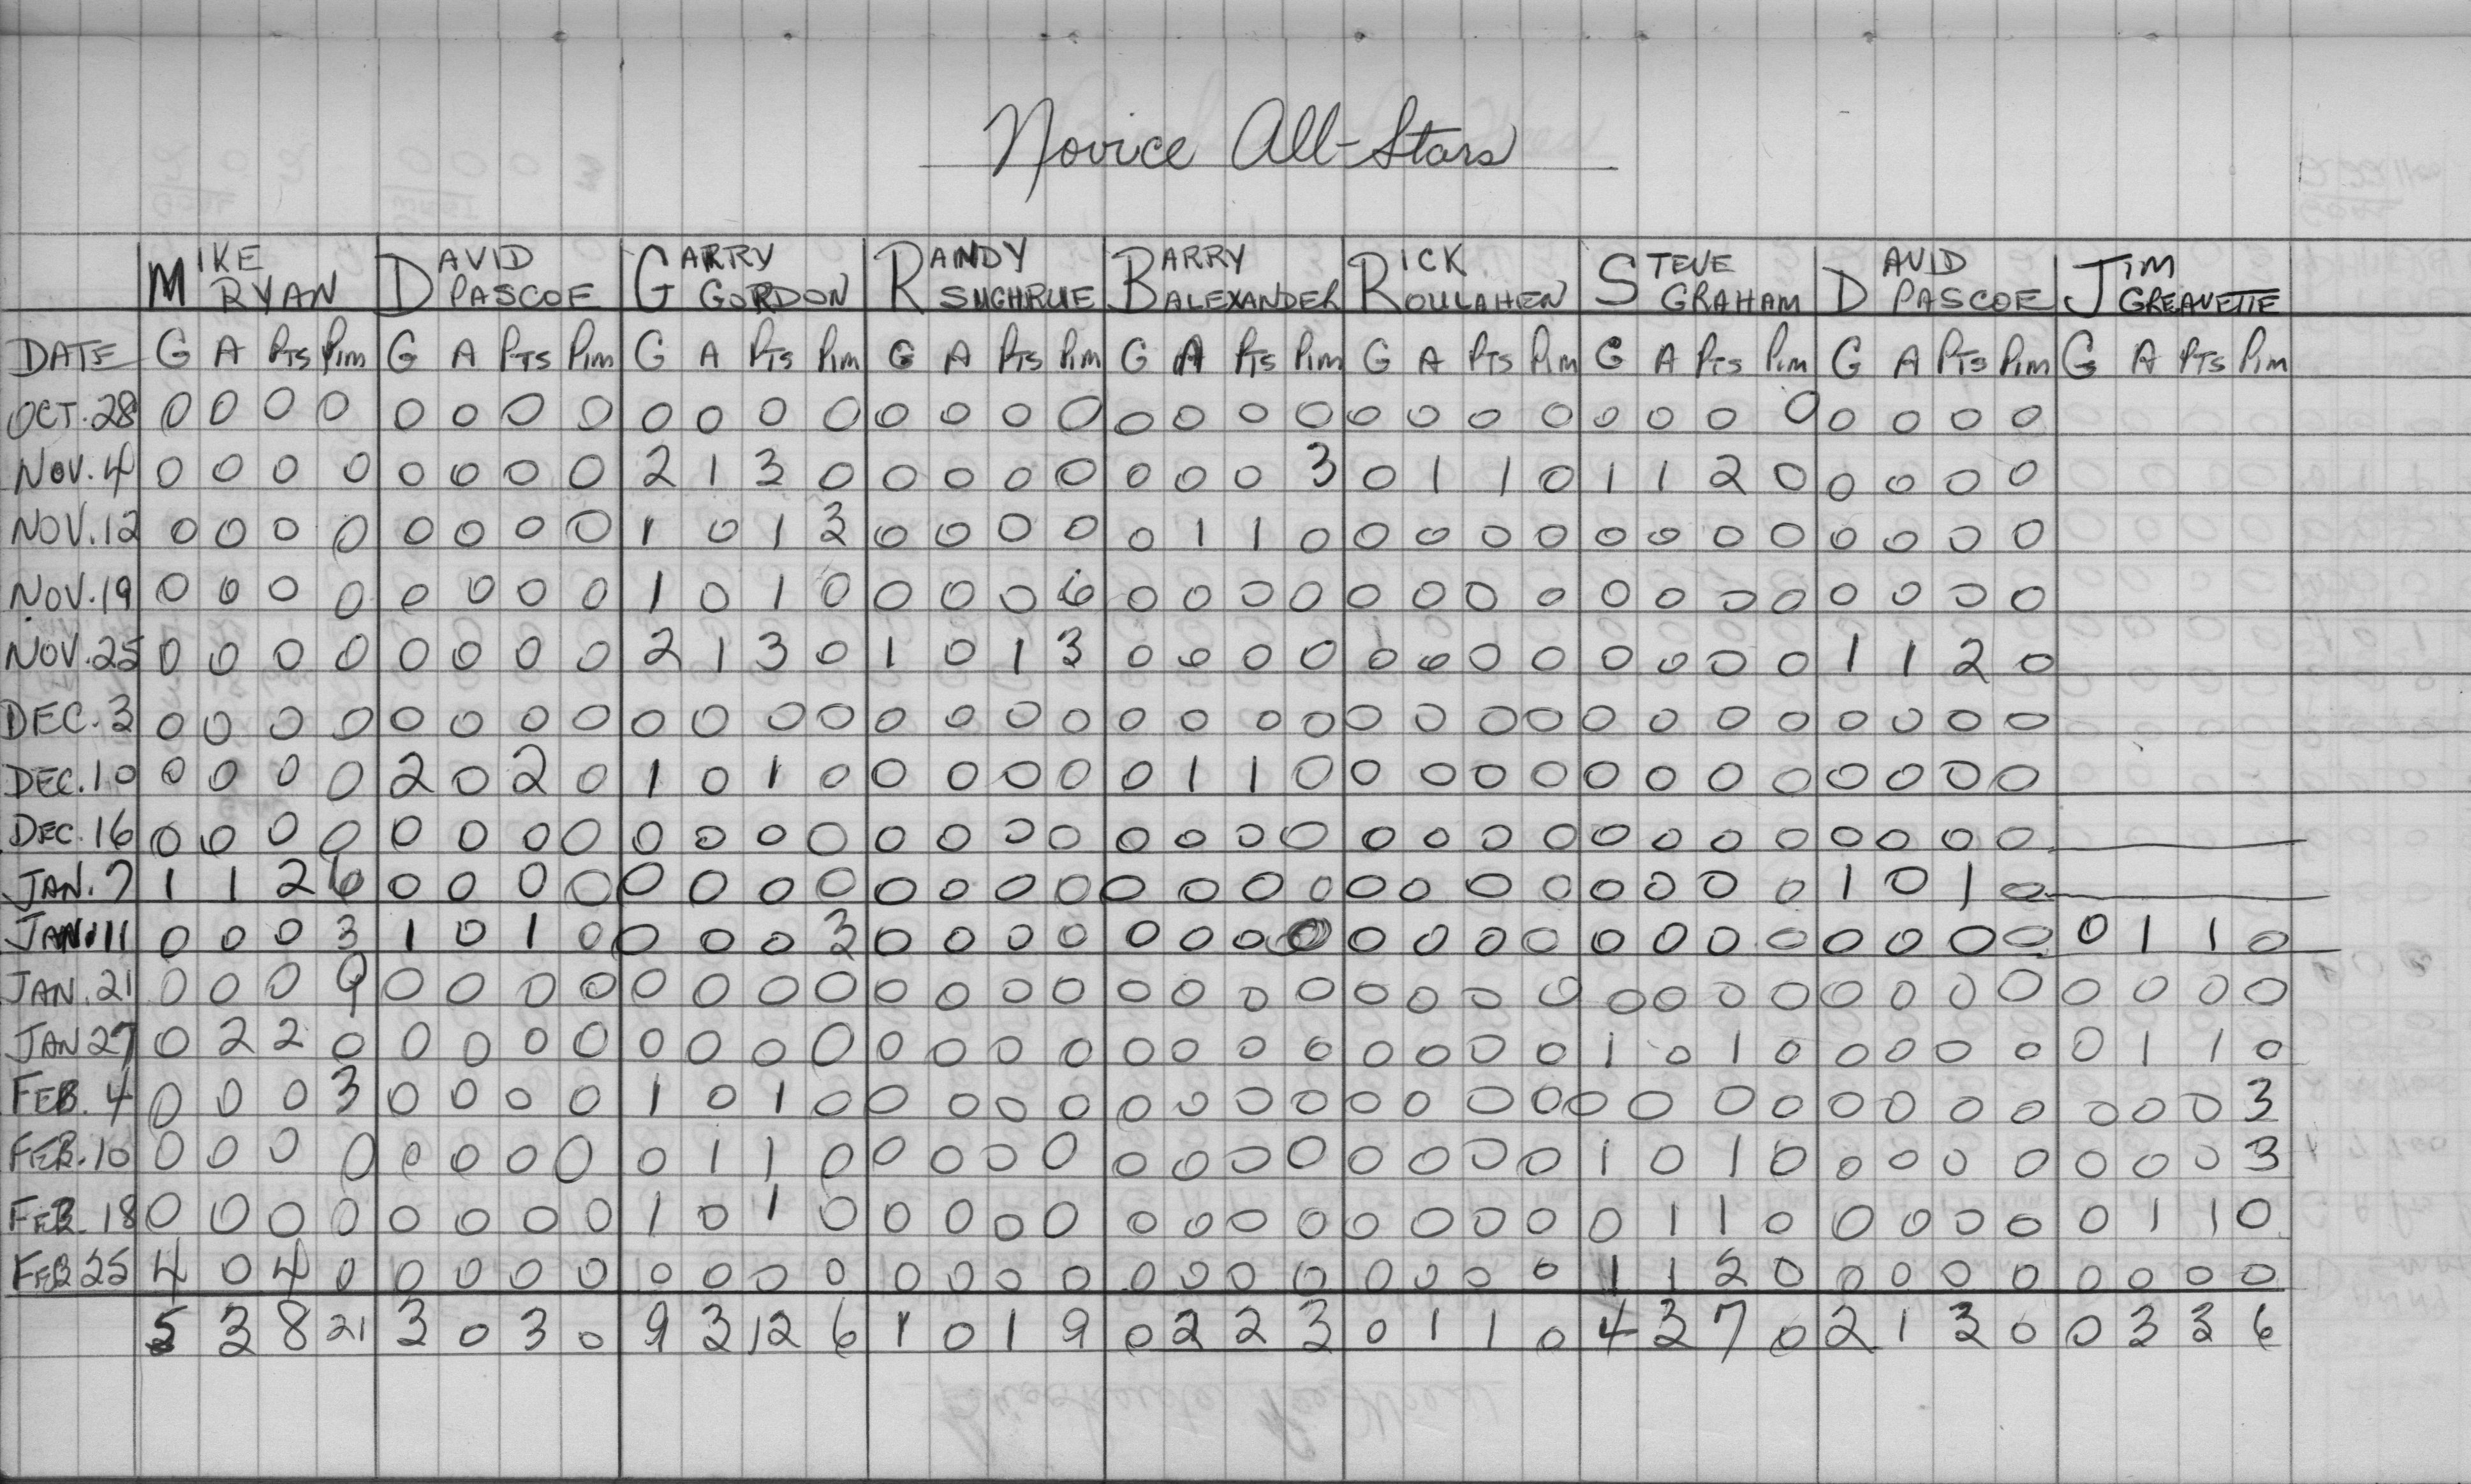 Novice All-Stars
MIKE RYAN DAVID PASCOE GARRY GORDON RANDY SUGHRUE BARRY ALEXANDER RICK ROULAHEN STEVE GRAHAM DAVID PASCOE JIM GREAVETTE
DATE G A PTS PIM G A PTS PIM G A PTS PIM G A PTS PIM G A PTS PIM G A PTS PIM G A PTS PIM G A PTS PIM G A PTS PIM
OCT. 28 0 0 0 0 0 0 0 0 0 0 0 0 0 0 0 0 0 0 0 0 0 0 0 0 0 0 0 0 0 0 0 0
NOV. 4 0 0 0 0 0 0 0 0 2 1 3 0 0 0 0 0 0 0 0 3 0 1 1 0 1 1 2 0 0 0 0 0
NOV. 12 0 0 0 0 0 0 0 0 1 0 1 3 0 0 0 0 0 1 1 0 0 0 0 0 0 0 0 0 0 0 0 0
NOV. 19 0 0 0 0 0 0 0 0 1 0 1 0 0 0 0 6 0 0 0 0 0 0 0 0 0 0 0 0 0 0 0 0
NOV. 25 0 0 0 0 0 0 0 0 2 1 3 0 1 0 1 3 0 0 0 0 0 0 0 0 0 0 0 0 1 1 2 0
DEC. 3 0 0 0 0 0 0 0 0 0 0 0 0 0 0 0 0 0 0 0 0 0 0 0 0 0 0 0 0 0 0 0 0
DEC. 10 0 0 0 0 2 0 2 0 1 0 1 0 0 0 0 0 0 1 1 0 0 0 0 0 0 0 0 0 0 0 0 0
DEC. 16 0 0 0 0 0 0 0 0 0 0 0 0 0 0 0 0 0 0 0 0 0 0 0 0 0 0 0 0 0 0 0 0
JAN. 7 1 1 2 6 0 0 0 0 0 0 0 0 0 0 0 0 0 0 0 0 0 0 0 0 0 0 0 0 1 0 1 0
JAN. 11 0 0 0 3 1 0 1 0 0 0 0 3 0 0 0 0 0 0 0 0 0 0 0 0 0 0 0 0 0 0 0 0 0 1 1 0
JAN. 21 0 0 0 9 0 0 0 0 0 0 0 0 0 0 0 0 0 0 0 0 0 0 0 0 0 0 0 0 0 0 0 0 0 0 0 0
JAN 27 0 2 2 0 0 0 0 0 0 0 0 0 0 0 0 0 0 0 0 0 0 0 0 0 1 0 1 0 0 0 0 0 0 1 1 0
FEB. 4 0 0 0 3 0 0 0 0 1 0 1 0 0 0 0 0 0 0 0 0 0 0 0 0 0 0 0 0 0 0 0 0 0 0 0 3
FEB. 10 0 0 0 0 0 0 0 0 0 1 1 0 0 0 0 0 0 0 0 0 0 0 0 0 1 0 1 0 0 0 0 0 0 0 0 3
FEB. 18 0 0 0 0 0 0 0 0 1 0 1 0 0 0 0 0 0 0 0 0 0 0 0 0 0 1 1 0 0 0 0 0 0 1 1 0
FEB 25 4 0 4 0 0 0 0 0 0 0 0 0 0 0 0 0 0 0 0 0 0 0 0 0 1 1 2 0 0 0 0 0 0 0 0 0
5 3 8 21 3 0 3 0 9 3 12 6 1 0 1 9 0 2 2 3 0 1 1 0 4 3 7 0 2 1 3 0 0 3 3 6